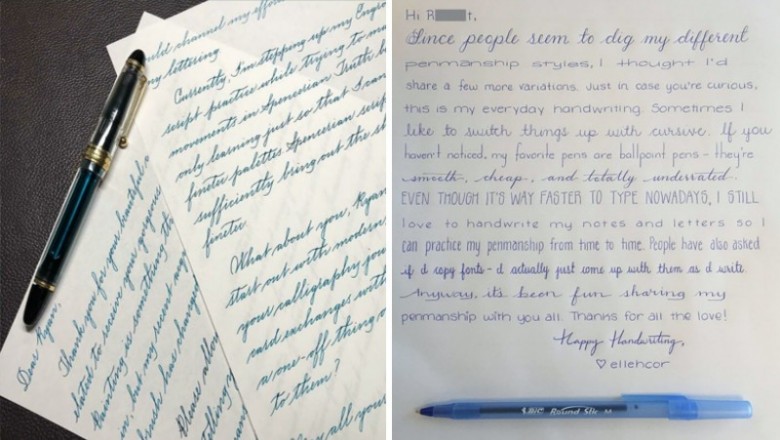 ould channel my
my lettering
Currently, I'm stepping up my Eng
script practice while trying to ma
movements in Spencerian. Truth b
only learning just so that I can
finetec palettes. Spencerian script
sufficiently bring out the sh
finetec.
What about you, Ryan
start out with modern
your calligraphy you
card exchanges with
a one-off thing o
to them?
all your
Dear Ryan,
Thank you for your beautiful
elated to receive your gorgeous
Painting is something th
in, but my recent
finch has change
Please allow
Hi R t,
Since people seem to dig my different
penmanship styles, I thought I'd
share a few more variations. Just in case you're curious,
this is my everyday handwriting. Sometimes I
like to switch things up with cursive. If you
haven't noticed, my favorite pens are ballpoint pens - they're
smooth, cheap, and totally underrated.
EVEN THOUGH IT'S WAY FASTER TO TYPE NOWADAYS, I STILL
love to handwrite my notes and letters so I
can practice my penmanship from time to time. People have also asked
if I copy fonts - I actually just come up with them as I write
Anyway, it's been fun sharing my
penmanship with you all. Thanks for all the love!
Happy Handwriting,
♡ ellencor
BIC Round Stic M